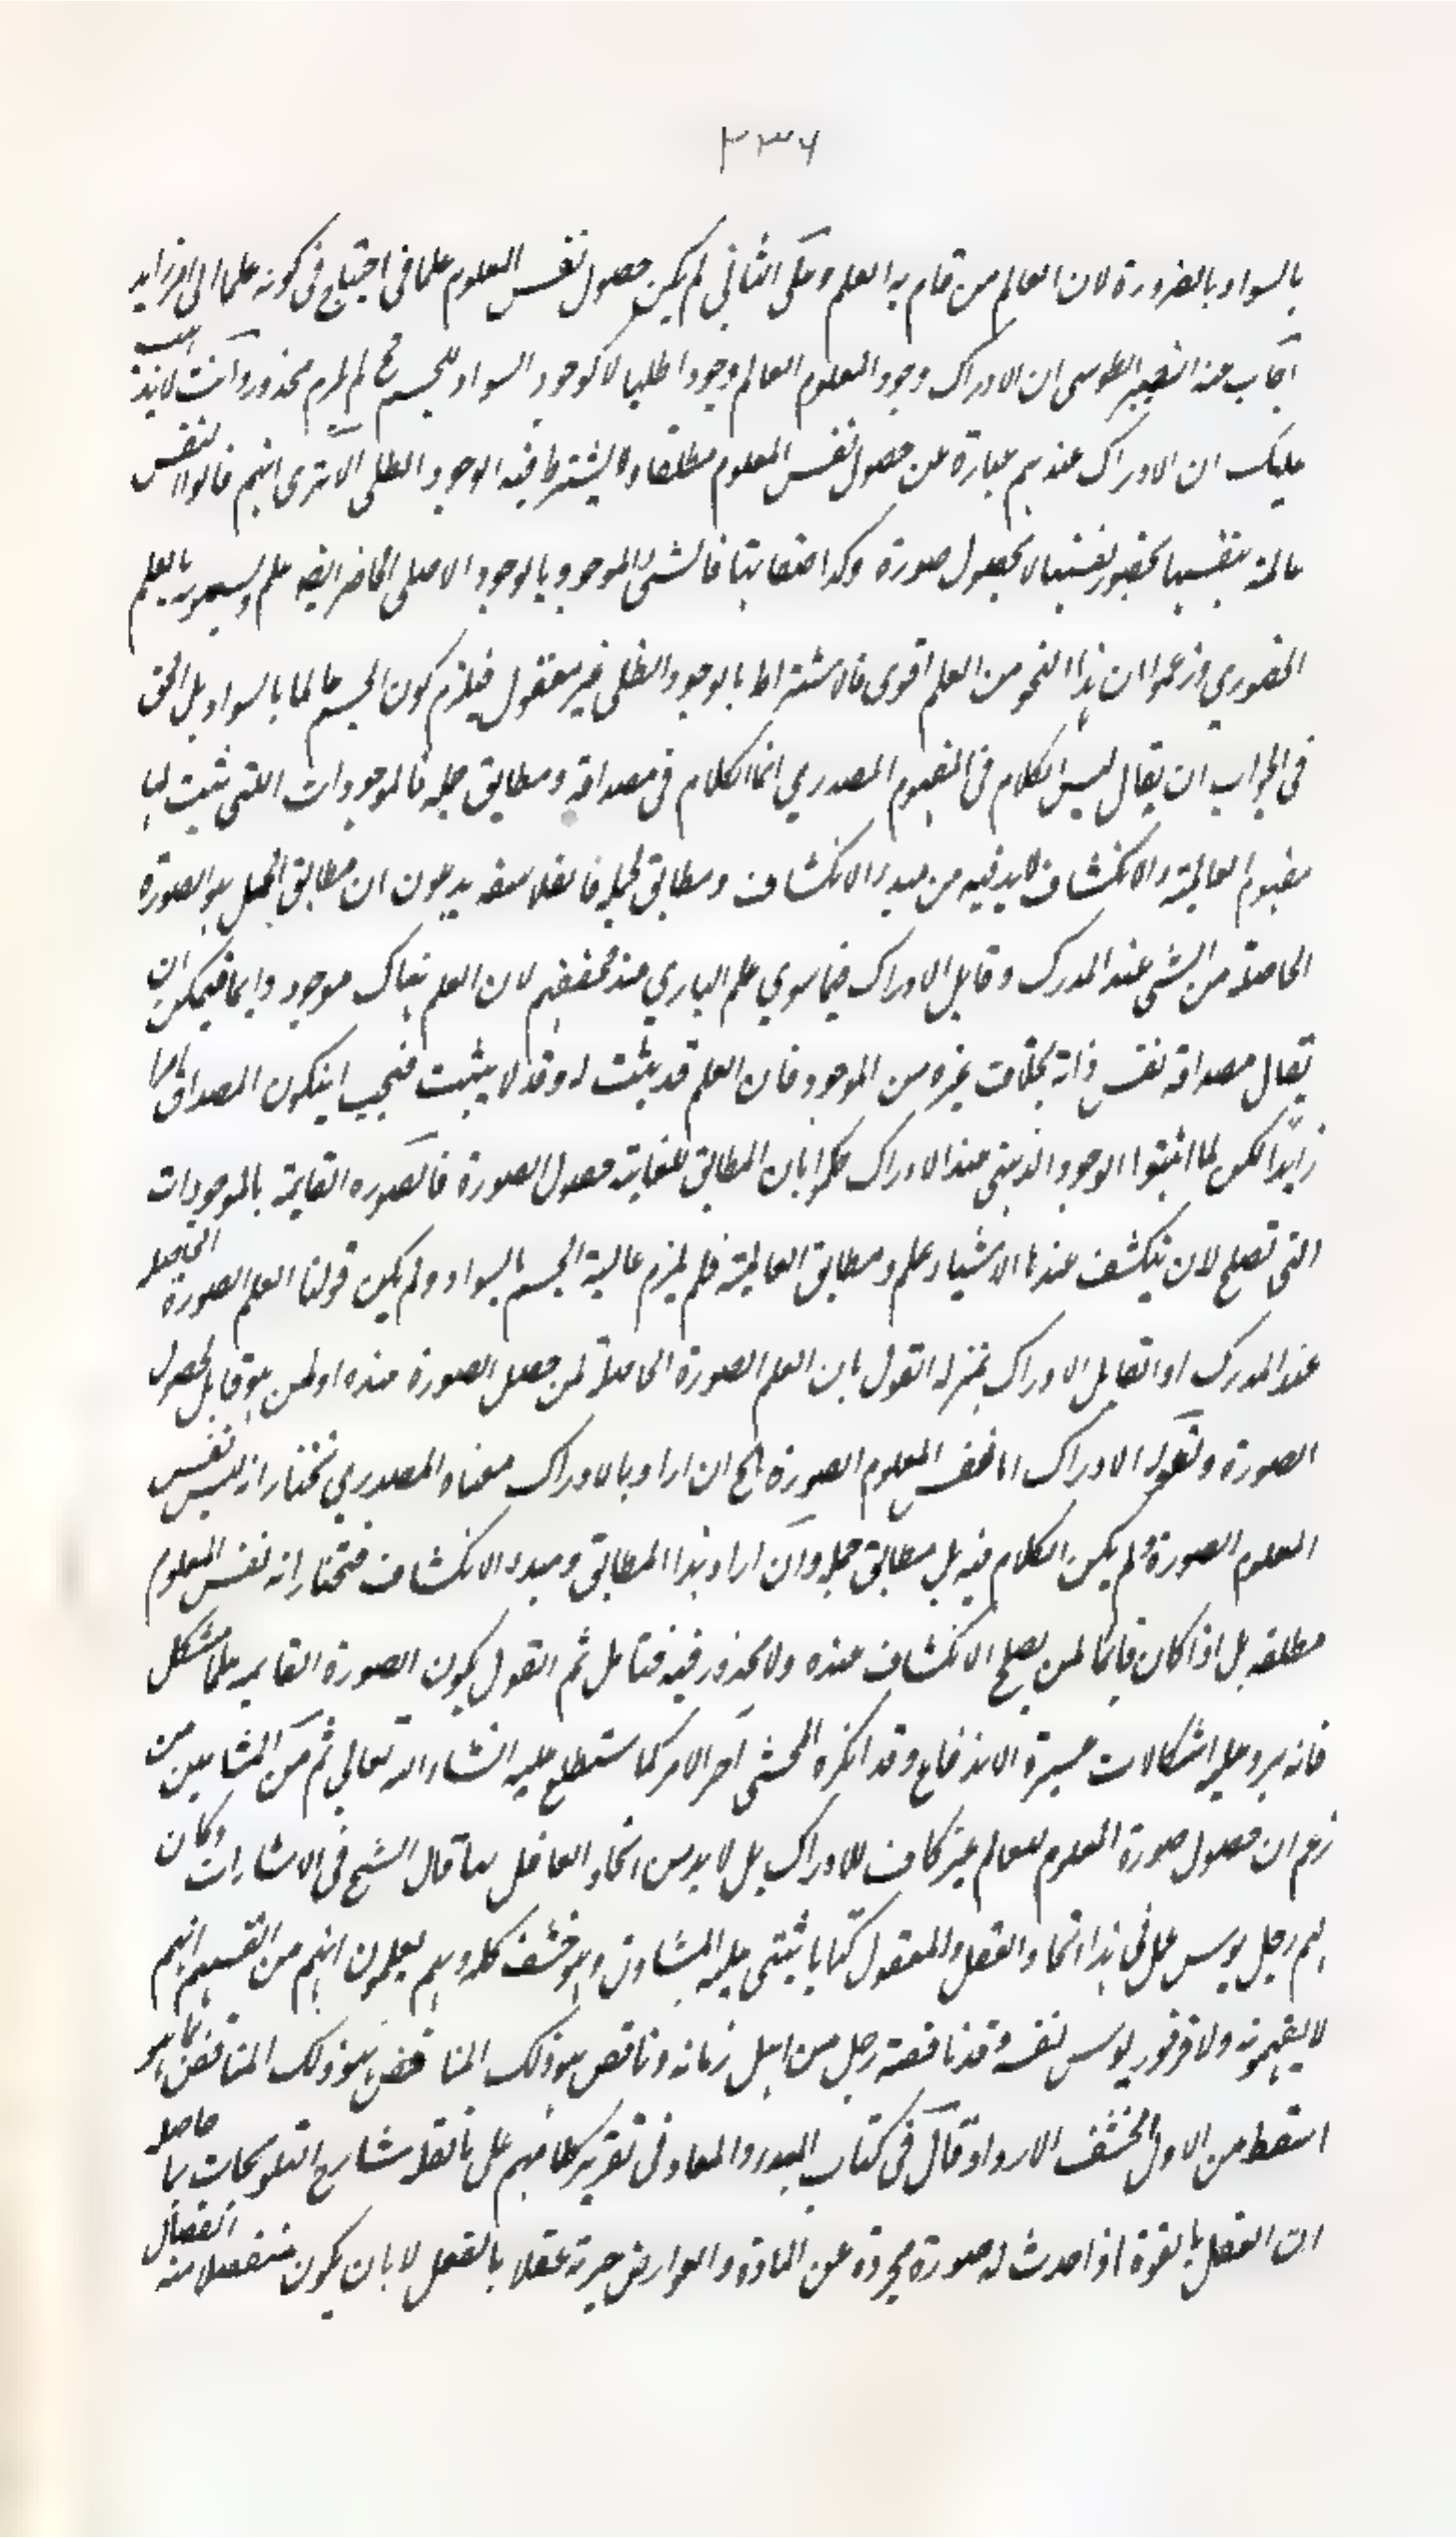 ٢٣٦
بالسواد بالضرورة لان العالم من قام به العلم وعلى الثاني لم يكن حصول نفس المعلوم علما فى احتياج فى كونه علما الى امر زايد
اجاب عنه النصير الطوسى ان الادراك وجود المعلوم للعالم وجودا ظليا لا كوجود السواد للجسم فح لم يلزم محذور وانت لا يذهب
عليك ان الادراك عندهم عبارة عن حصول نفس المعلوم مطلقا ولا يشترط فيه الوجود الظلى الا ترى انهم قالوا النفس
عالمة بنفسها بحضور نفسها لا بحصول صورة وكذا صفاتها فالشئ الموجود بالوجود الاصلى الحاضر ايضا علم ويسمونه بالعلم
الحضوري وزعموا ان هذا النحو من العلم اقوى فالاشتراط بالوجود الظلى غير معقول فيلزم كون الجسم عالما بالسواد بل الحق
فى الجواب ان يقال ليس الكلام فى المفهوم المصدري انما الكلام فى مصداقه ومطابق حمله فالموجودات التى يثبت لها
مفهوم العالمية والانكشاف لابد فيه من مبدء الانكشاف ومطابق لحمله فالفلاسفه يدعون ان مطابق الحمل هو الصورة
الحاصلة من الشئ عند المدرك وقابل الادراك فيما سوي علم الباري عند محققيهم لان العلم هناك موجود دايما فيمكن ان
يقال مصداقه نفس ذاته بخلاف غيره من الموجود فان العلم قد يثبت له وقد لا يثبت فيجب ان يكون المصداق امرا
زايدا لكن لما اثبتوا الوجود الذهنى عند الادراك حكموا بان المطابق للغاية حصول الصورة فالصوره القايمة بالموجودات
التى تصلح لان ينكشف عندها الاشياء علم ومطابق العالمية فلم يلزم عالمية الجسم بالسواد ولم يكن قولنا العلم الصورة الحاصلة
عند المدرك او القابل الادراك بمنزلة القول بان العلم الصورة الحاصلة لمن حصل الصورة عنده او لمن هو قابل لحصول
الصورة وقوله الادراك اما نفس المعلوم الصورة الخ ان اراد بالادراك معناه المصدري نختار انه ليس نفس
المعلوم الصورة ولم يكن الكلام فيه بل مطابق حمله وان اراد هذا المطابق ومبدء الانكشاف فنختار انه نفس المعلوم
مطلقه بل اذا كان قايما لمن يصلح الانكشاف عنده ولا محذور فيه فتامل ثم القول بكون الصورة القايمه علما مشكل
فانه يرد عليه اشكالات عسيرة الاندفاع وقد انكره المحشى آخر الامر كما ستطلع عليه انشاء الله تعالى ثم من المشايين من
زعم ان حصول صورة المعلوم للعالم غير كاف للادراك بل لابد من اتحاد العاقل بها قال الشيخ فى الاشارات وكان
لهم رجل يوس عمل فى هذا اتحاد العقل والمعقول كتابا يثنى عليه المشاون وهو خشف كله وهم يعلمون انهم من انفسهم انهم
لا يفهمونه ولا فرفوريوس نفسه وقد ناقضه رجل من اهل زمانه وناقض هو ذلك المناقض هو ذلك المناقض بما هو
اسقط من الاول الخشف الاردا وقال فى كتاب المبدء والمعاد فى تقرير كلامهم على ما نقله شارح التلويحات ما حاصله
ان العقل بالقوة اذا حدث له صورة مجردة عن المادة والعوارض صيرته عقلا بالفعل لا بان يكون منفصلا منه انفصال